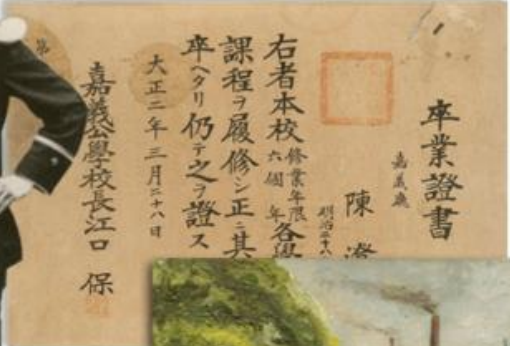 卒業證書
嘉義廳
陳澄
明治二十八
右者本校修業年限六個年各學
課程ヲ履修シ正ニ其
卒ヘタリ仍テ之ヲ證ス
大正二年三月二十八日
嘉義公學校長江口 保
第